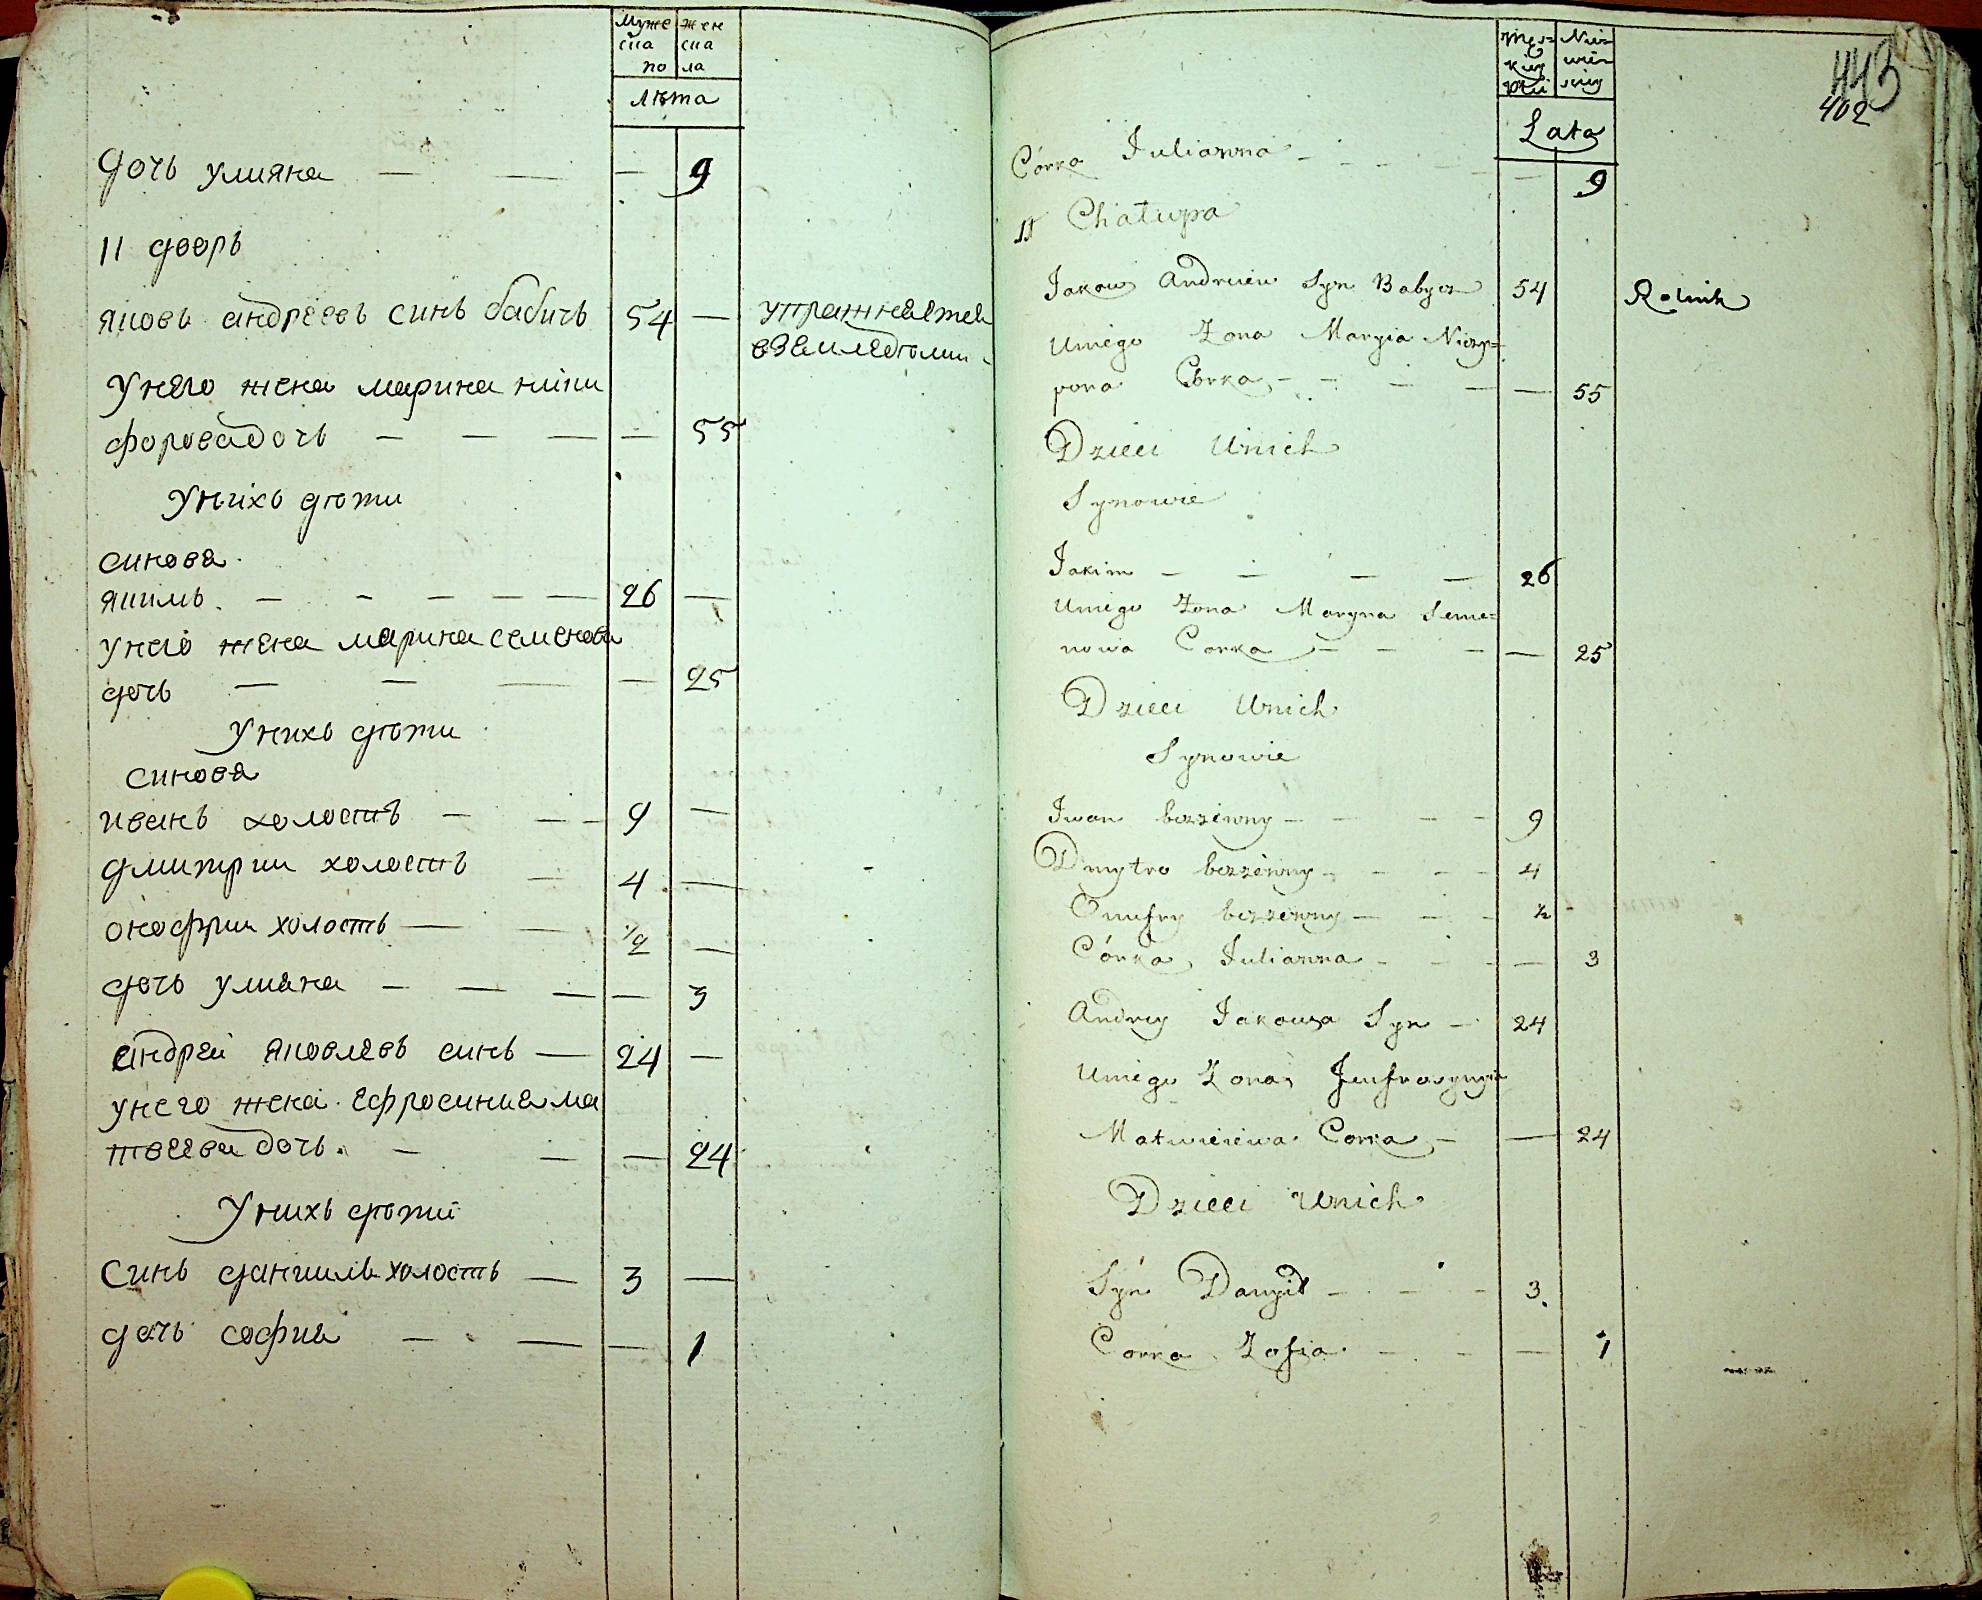 Муже жен
ска ска
по ла
лѣта
дочь улияна — — — 9
11 дворъ
яковъ андреевъ синъ бабичъ 54 — упражняетса
вземледѣлии
унего жена марина ники
форовадочь — — — — 55
унихъ дѣти
синовя
якимъ — — — — — 26 —
унего жена марина семенова
дочь — — — — 25
унихъ дѣти
синовя
иванъ холостъ — — — 9 —
дмитрии холостъ — 4 —
онофрии холостъ — — 1/2 —
дочь улияна — — — — 3
андрей яковлевъ синъ — 24 —
унего жена ефросиния ма
твеева дочь — — — 24
унихъ дѣти
синъ даниилъ холостъ — 3 —
дочь софия — — — 1
443
402
Lata
Córka Julianna — — — — — 9
11 Chałupa
Jakow Andreiew Syn Babycz 54 Rolnik
Uniego Żona Maryia Niczy=
pora Córka — — — — — 55
Dzieci Unich
Synowie
Jakim — — — — 26
Uniego Żona Maryna Seme=
nowa Corka — — — — 25
Dzieci Unich
Synowie
Iwan bezżenny — — — 9
Dmytro bezżenny — — — — 4
Onufry bezżenny — — — 1/2
Córka Julianna — — — — 3
Andrey Jakowa Syn — 24
Uniego Żona Jeufrosynyia
Matwieiewa Corka — — 24
Dzieci Unich
Syn Danyił — — — 3
Corka Zofia — — — 1